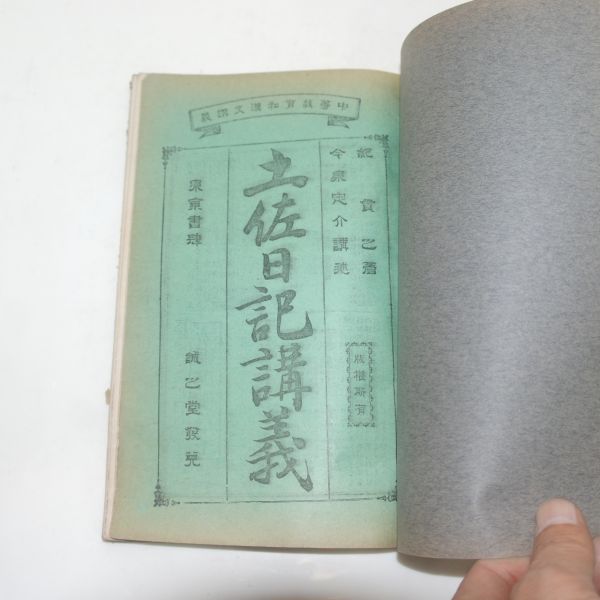 中等教育和漢文講義
紀貫之著
今泉定介講述
版権所有
土佐日記講義
東京書肆
誠之堂発兌